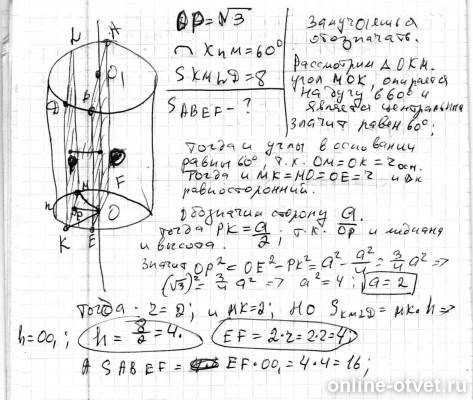 L A
OP=√3
◠ KnM=60°
S KMLD=8
S ABEF - ?
замучаешься
обозначать.
Рассмотрим Δ OKM.
угол MOK, опирается
на дугу в 60° и
является центральным
значит равен 60°;
Тогда и углы в основании
равны 60°, т.к. OM=OK=r осн.
Тогда и MK=MO=OE=r и он
равносторонний.
Обозначим сторону a.
Тогда PK=a/2; т.к. OP и медиана
и высота.
Значит OP²=OE²-PK²=a²-a²/4=3/4 a² =>
(√3)²=3/4 a² => a²=4; a=2
Тогда: r=2; и MK=2; но S KMLD=MK·h =>
h=OO₁; h=8/2=4. EF=2·r=2·2=4;
A SABEF= EF·OO₁=4·4=16;
O₁
D B
F
M
n P O
K E
online-otvet.ru